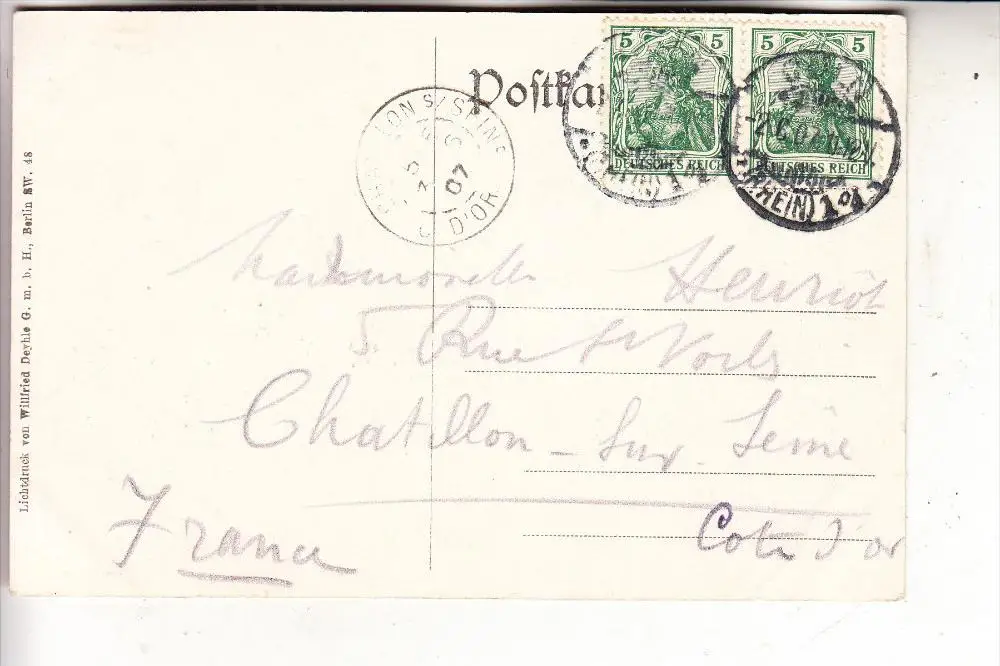 Postkar
5 5 5 5
DEUTSCHES REICH DEUTSCHES REICH
LON S/ SEINE
07
C D'OR
(RHEIN) 1
Mademoiselle Henriot
5 Rue St Vorles
Chatillon-sur-Seine
Cote d'or
France
Lichtdruck von Willfried Deyhle G. m. b. H., Berlin SW. 48